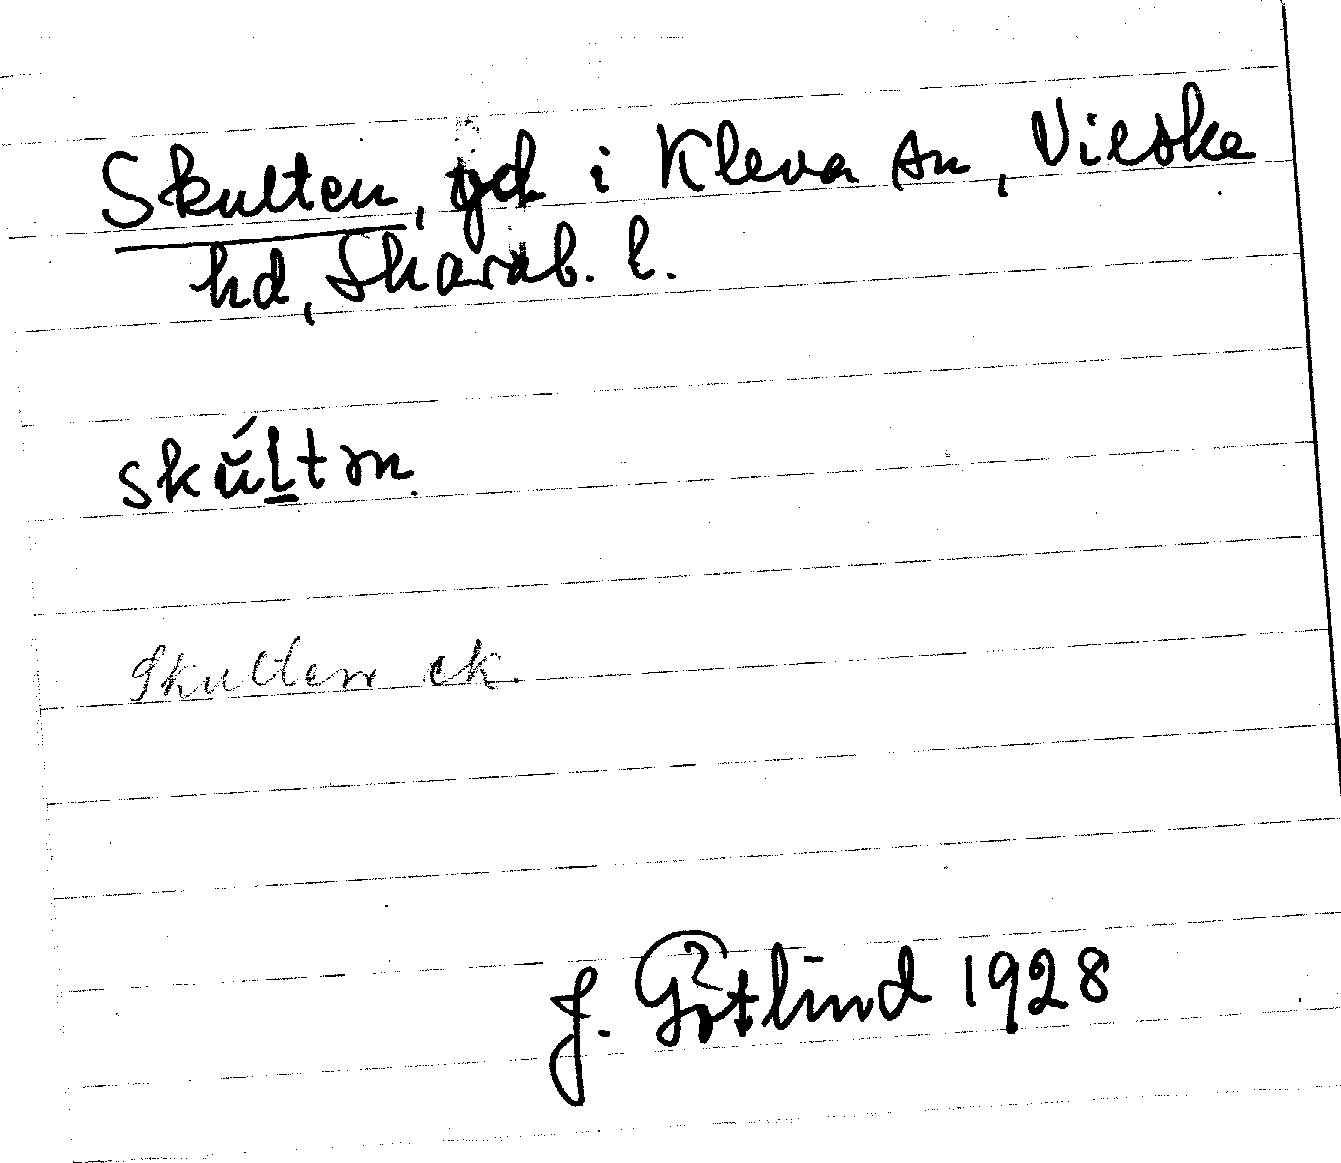 Skulten, gd i Kleva sn, Vilske
hd, Skarab. l.
skúl̲tən.
Skulten ek.
J. Götlind 1928